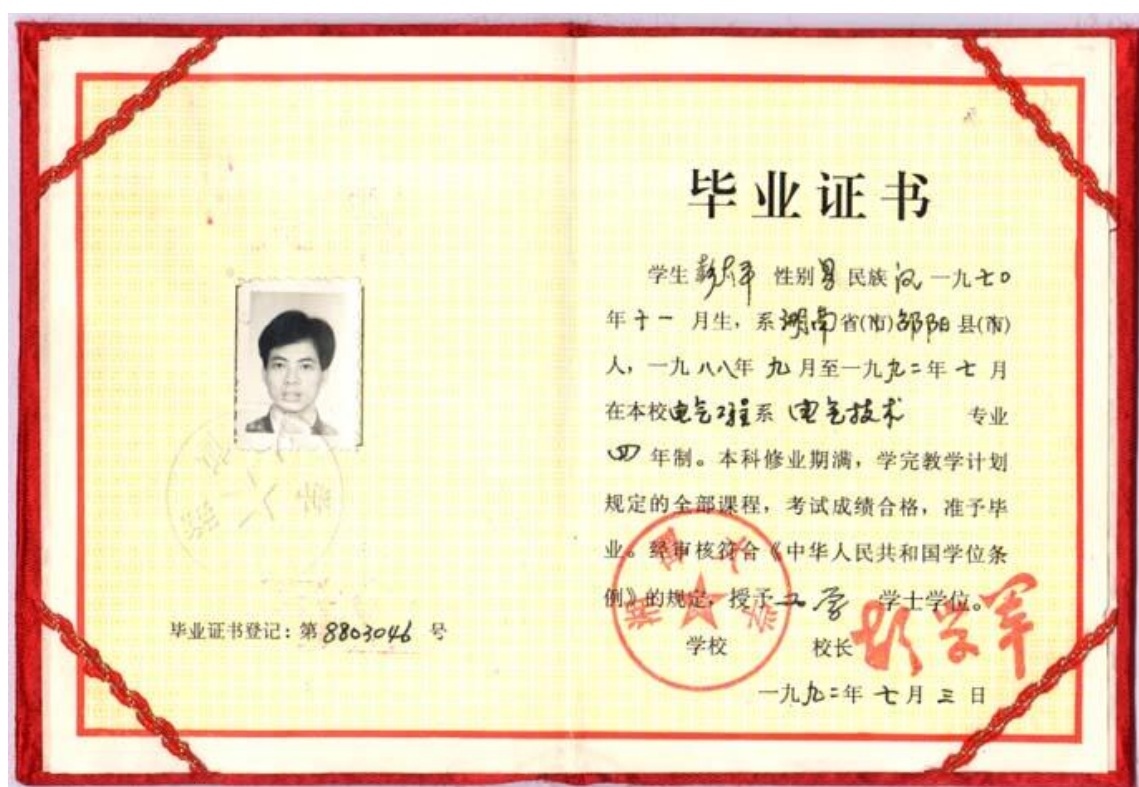 毕业证书
学生 彭太平 性别 男 民族 汉 一九七〇
年十一 月生，系湖南省(市)邵阳县(市)
人，一九八八年 九 月至一九九二年 七 月
在本校电气工程系 电气技术 专业
四 年制。本科修业期满，学完教学计划
规定的全部课程，考试成绩合格，准予毕
业。经审核符合《中华人民共和国学位条
例》的规定，授予工学 学士学位。
学校 校长
一九九二年 七 月 三 日
毕业证书登记：第 8803046 号